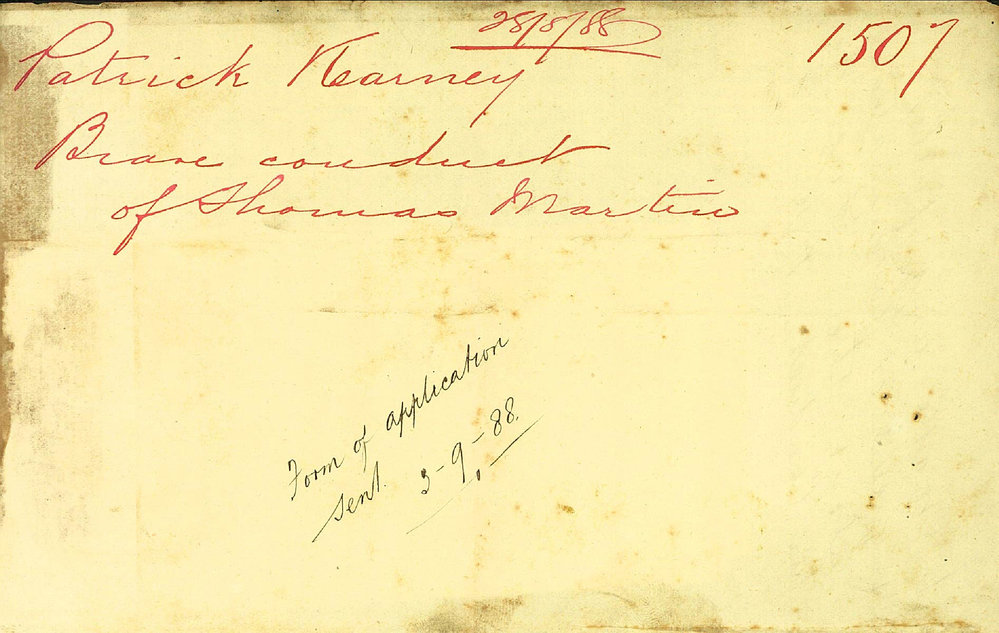 28/8/88
Patrick Kearney 1507
Brave conduct
of Thomas Martin
Form of application
sent. 3-9-88.